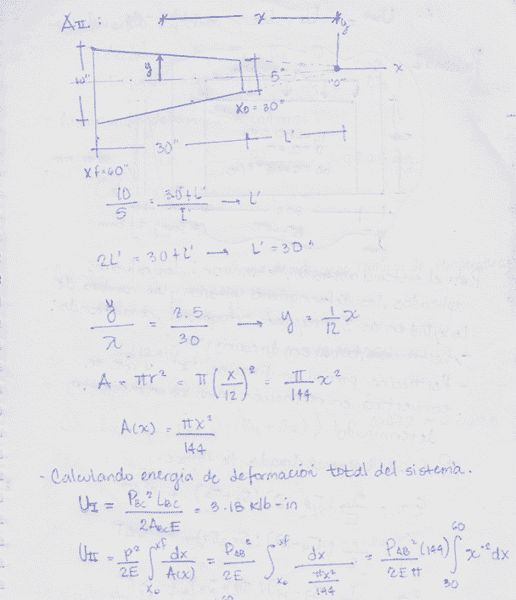 AII :
x
y
y
x
10"
5"
"0"
X0 = 30"
30"
L'
Xf = 60"
10/5 = 30+L'/L' → L'
2L' = 30+L' → L' = 30"
y/x = 2.5/30 → y = 1/12 x
A = πr² = π(x/12)² = π/144 x²
A(x) = πx²/144
- Calculando energia de deformación total del sistema.
UI = PBC² LBC / 2ABCE = 3.18 Klb-in
UII = P²/2E ∫x0^xf dx/A(x) = PAB²/2E ∫x0^xf dx/(πx²/144) = PAB²(144)/2Eπ ∫30^60 x⁻² dx
60